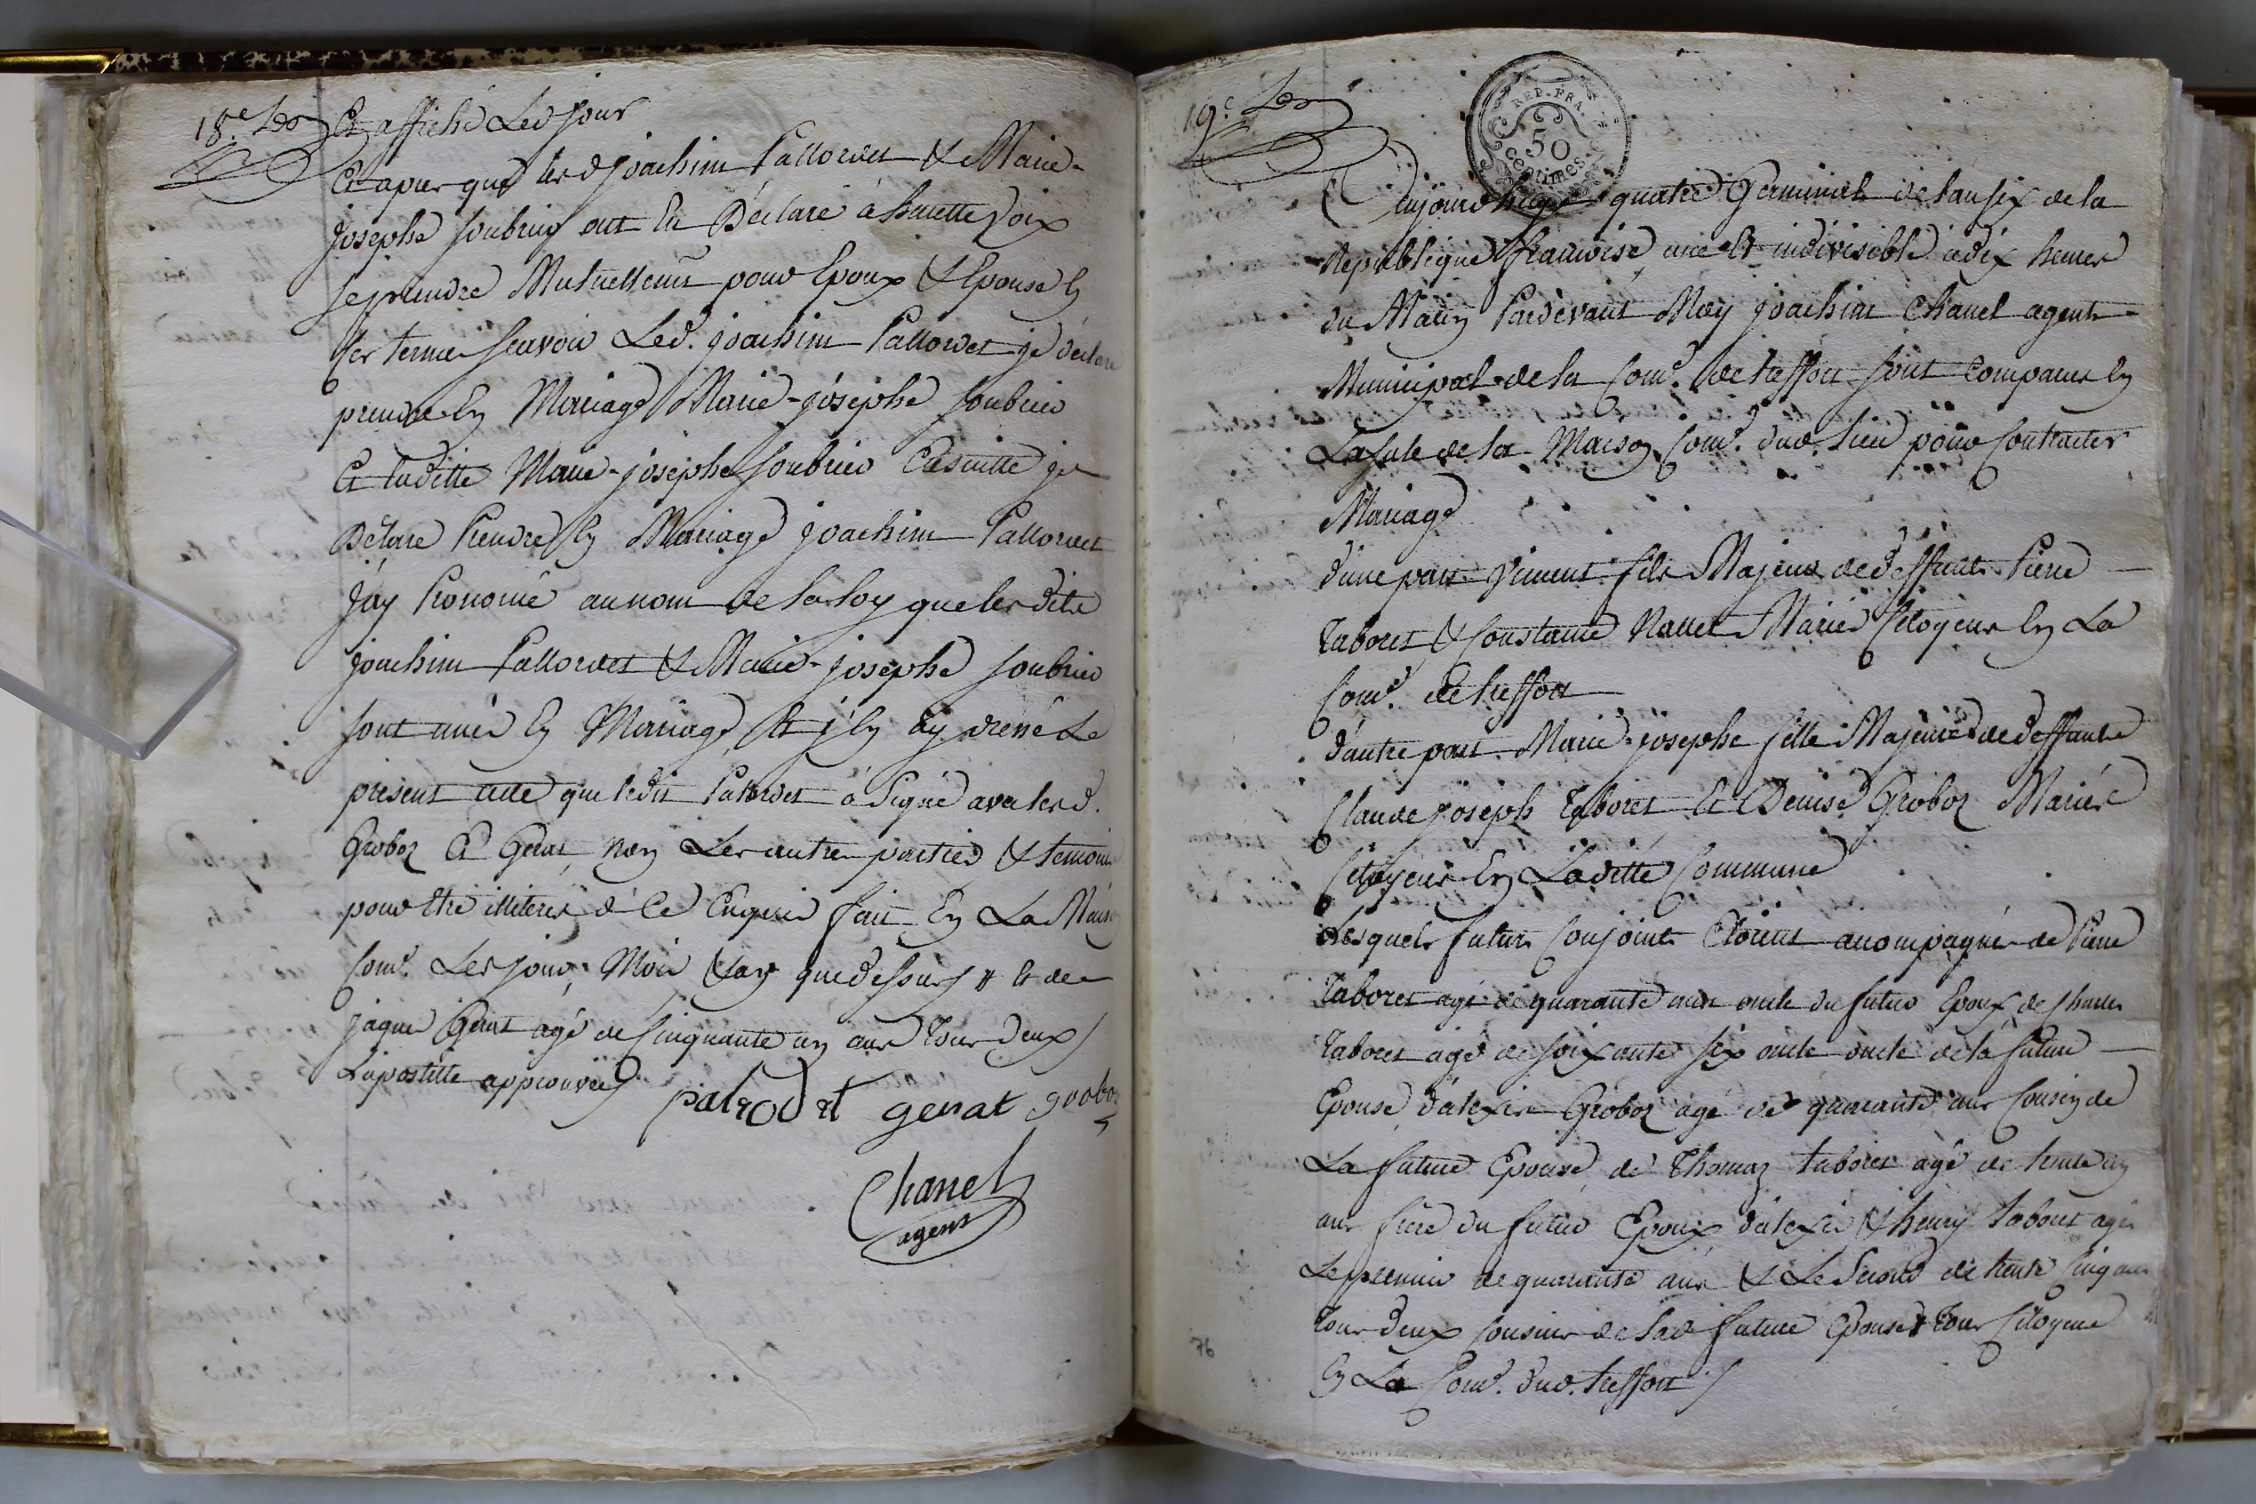 18e
Et affiché Led jour
Et apres que les d joachim Pallordet & Marie-
josephe Soubrier ont En Déclaré à hautte Voix
se prendre Mutuellemt pour Epoux & Epouse En
ces termes scavoir Led. joachim Pallordet je déclare
prendre En Mariage Marie-josephe Soubrier
Et laditte Marie-josephe Soubrier Ensuitte je
Déclare Prendre En Mariage joachim Pallordet
j'ay Prononcé au nom de la loy que les dits
joachim Pallordet & Marie-josephe Soubrier
sont unis En Mariage, Et j'En ay dressé Le
présent acte que ledit Palordet à Signé avec les d.
Groboz Et Gerat, non Les autres parties & temoins
pour Etre illiteres de Ce Enquis fait En La Maison
Come. Les jour, Mois & an que dessus # et de
jaque Gerat agé de Cinquante un ans tous deux
Lapostille approuvée
palrodet gerat grobo
z
Chanel
agent
19e
REP. FRA.
50
centimes
Aujourd'huy quatre Germinal de l'an six de la
République francoise, une Et indivisible à dix heures
du Matin Pardevant Moy joachim Chanel agent
Municipal de la Come. de treffort sont Comparus En
La sale de la Maison Come. dud. lieu pour Contracter
Mariage
d'une part Vincent fils Majeur de deffunt Pierre
Taboret & Constance Nallet Mariés Citoyens En La
Come. de treffort
d'autre part Marie-josephe fille Majeure de deffunt
Claude joseph Taboret Et Denise Groboz Mariés
Citoyens En Laditte Commune
Lesquels futurs Conjoints Etoient acompagnés de Pierre
Taboret agé de quarante ans oncle du futur Epoux, de Charles
Taboret agé de soixante six oncle oncle de la future
Epouse, d'alexis Groboz agé de quarante ans Cousin de
La future Epouse, de Thomas taboret agé de trente un
ans frère du futur Epoux d'alexis & henry taboret agés
Le premier de quarante ans & Le Second de trente Cinq ans
tous deux Cousins de lad future Epouse & tous Citoyens
En La Come. dud. treffort
76